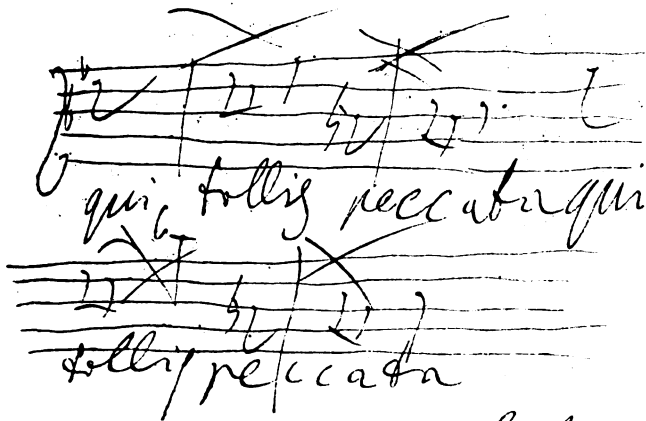 qui tollis peccata qui
tollis peccata